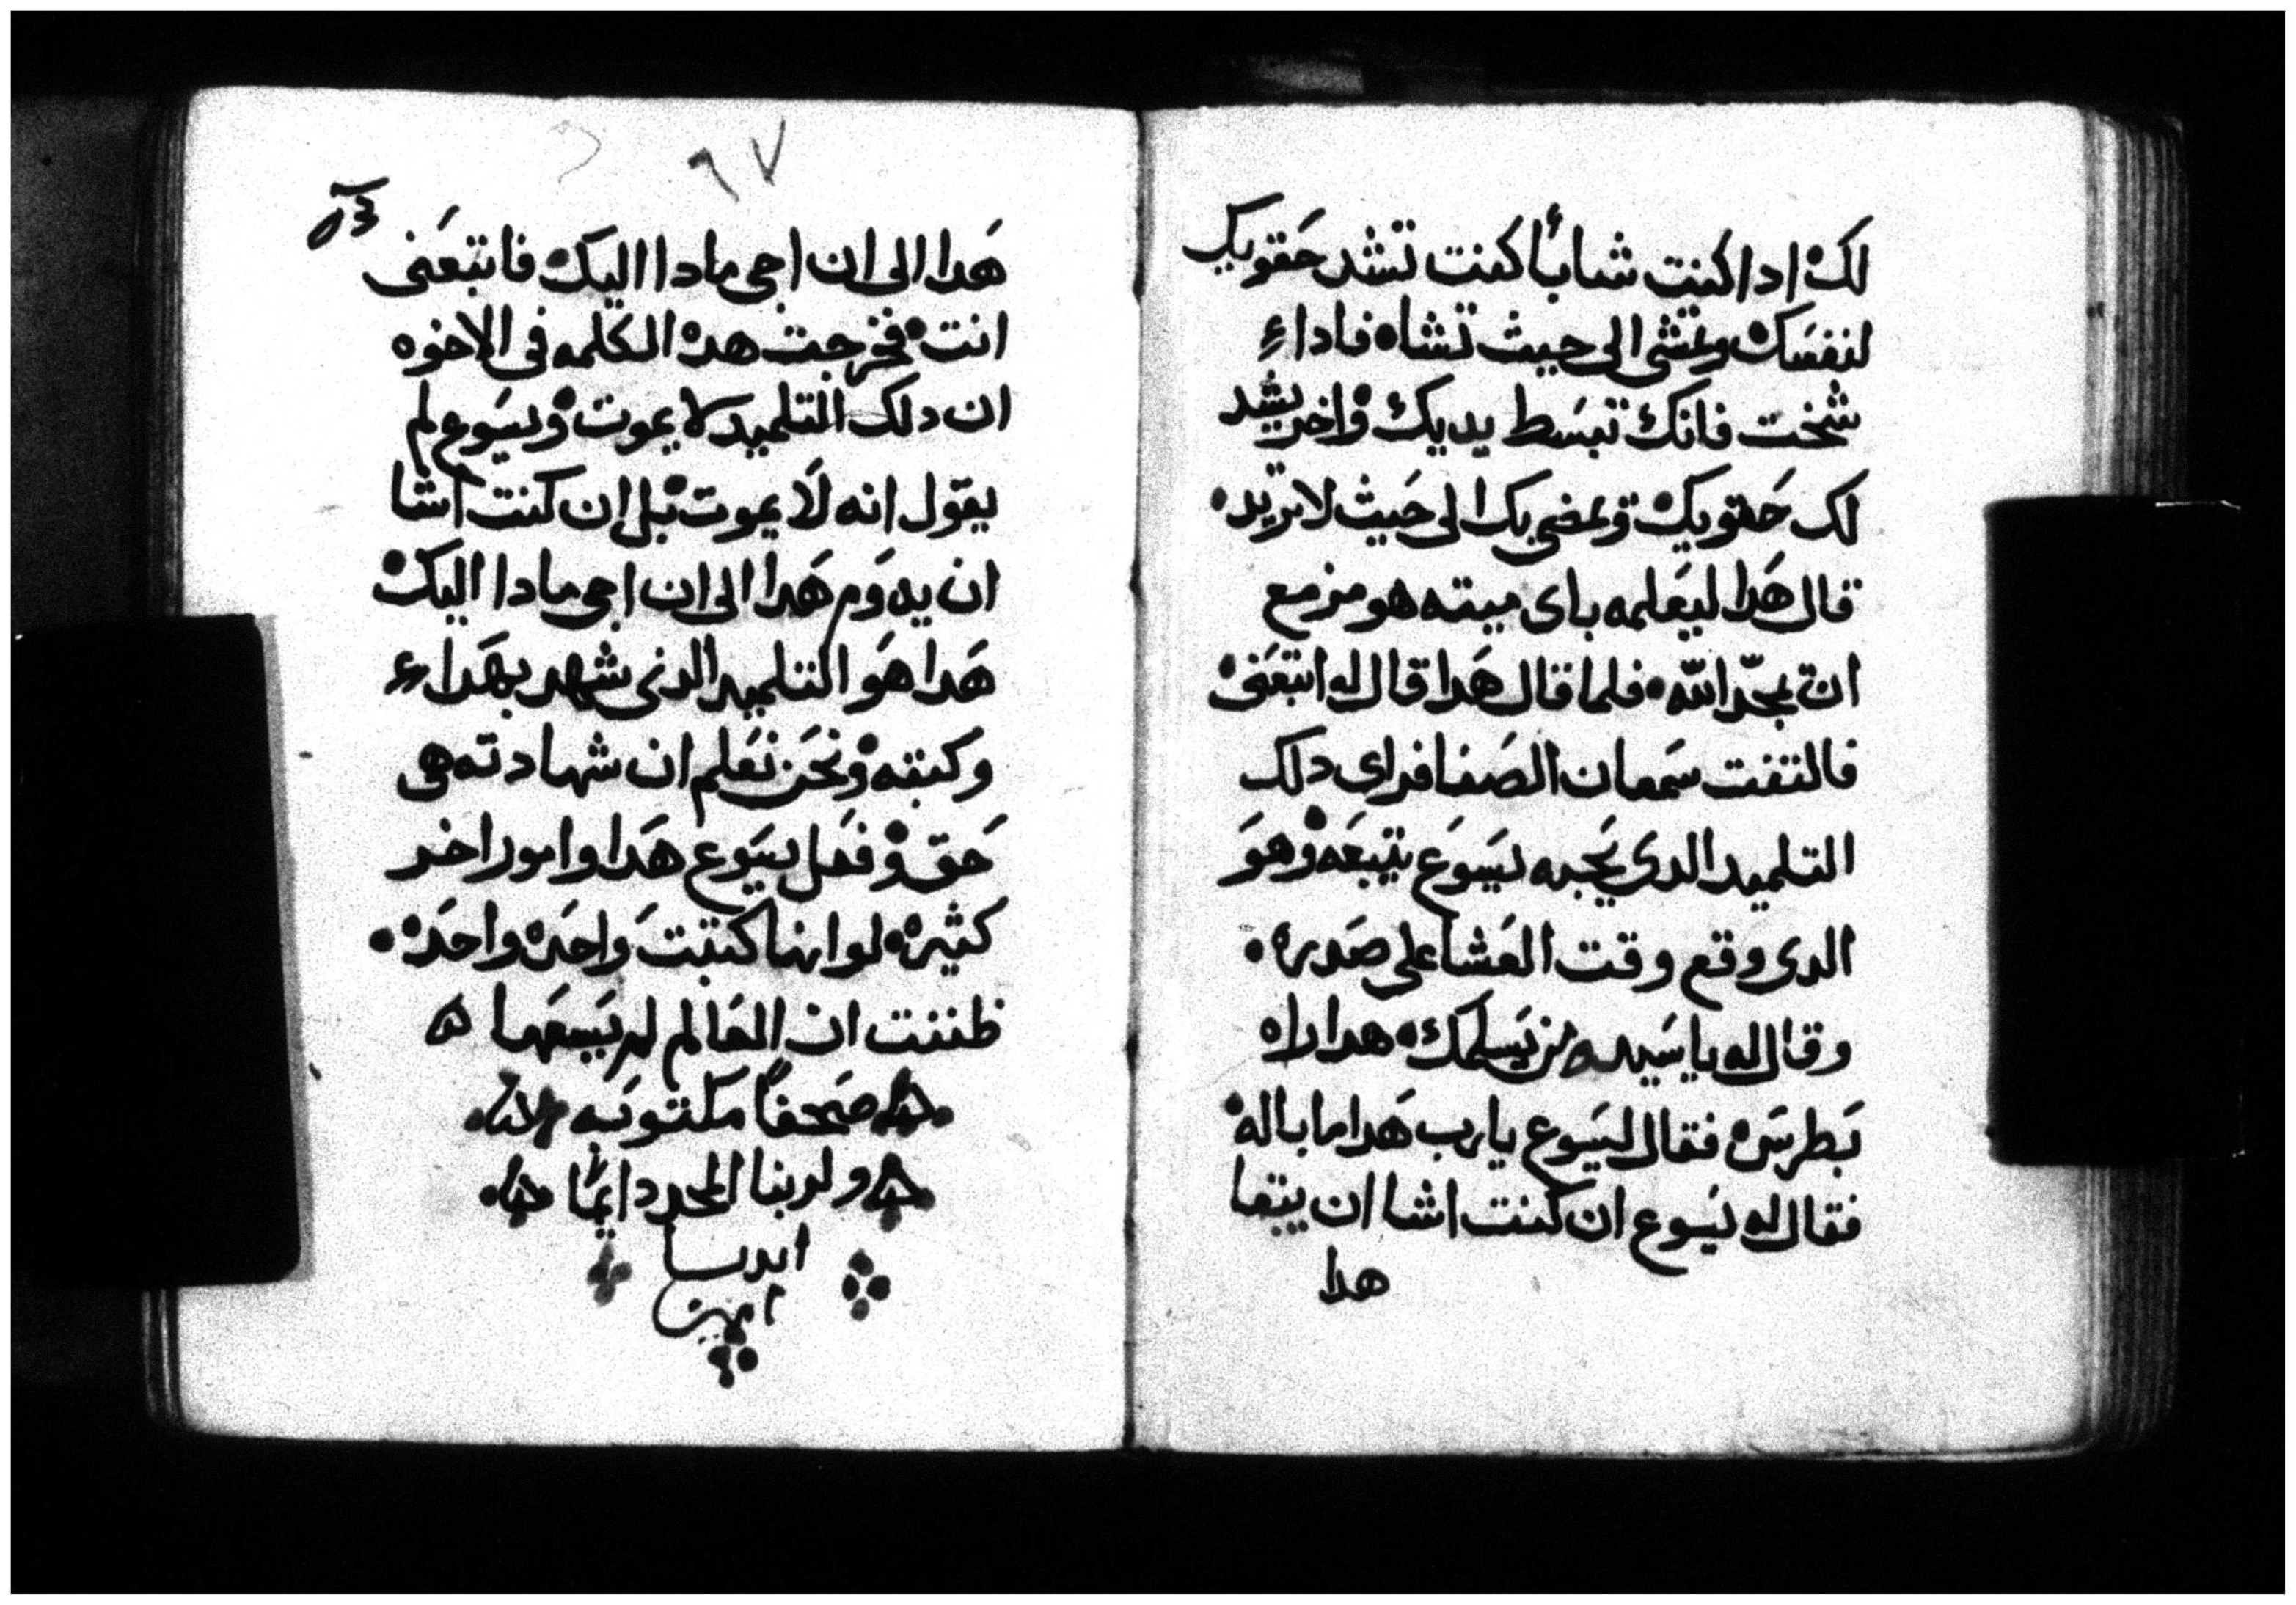 لك ادا كنت شاباً كنت تشد حقويك
لنفسك وتمشى الى حيث تشاه فاداء
شخت فانك تبسط يديك واخر يشد
لك حقويك وبمضى بك الى حيث لا تريد
قال هدا ليعلمه باى ميته هو مزمع
ان يمجد الله فلما قال هدا قال له اتبعنى
فالتفت سمعان الصفا فراى دلك
التلميد الدى يحبه يسوع يتبعه وهو
الدى وقع وقت العشا على صدره
وقال له يا سيد من يسلمك هدا راه
بطرس فقال ليسوع يارب هدا ما باله
فقال له يسوع ان كنت اشا ان يبقا
هدا
٩٧
هدا الى ان اجى مادا اليك فاتبعنى
انت فخرجت هده الكلمه فى الاخوه
ان دلك التلميد لا يموت ويسوع لم
يقول انه لا يموت بل ان كنت اشا
ان يدوم هدا الى ان اجى مادا اليك
هدا هو التلميد الدى شهد بهداء
وكتبه ونحن نعلم ان شهادته هى
حق وفعل يسوع هدا وامور اخر
كثيره لو انها كتبت واحده واحده
ظننت ان العالم لم يسعها
صحفاً مكتوبه
ولربنا المجد دايماً
ابديا
امين